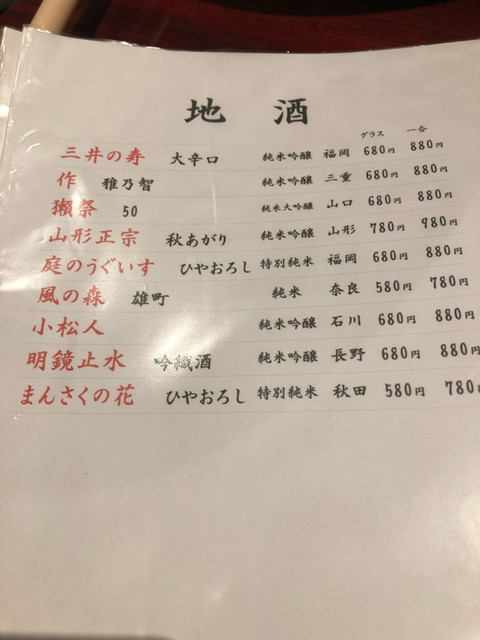 地 酒
グラス 一合
三井の寿 大辛口 純米吟醸 福岡 680円 880円
作 雅乃智 純米吟醸 三重 680円 880円
獺祭 50 純米大吟醸 山口 680円 880円
山形正宗 秋あがり 純米吟醸 山形 780円 980円
庭のうぐいす ひやおろし 特別純米 福岡 680円 880円
風の森 雄町 純米 奈良 580円 780円
小松人 純米吟醸 石川 680円 880円
明鏡止水 吟織酒 純米吟醸 長野 680円 880円
まんさくの花 ひやおろし 特別純米 秋田 580円 780円